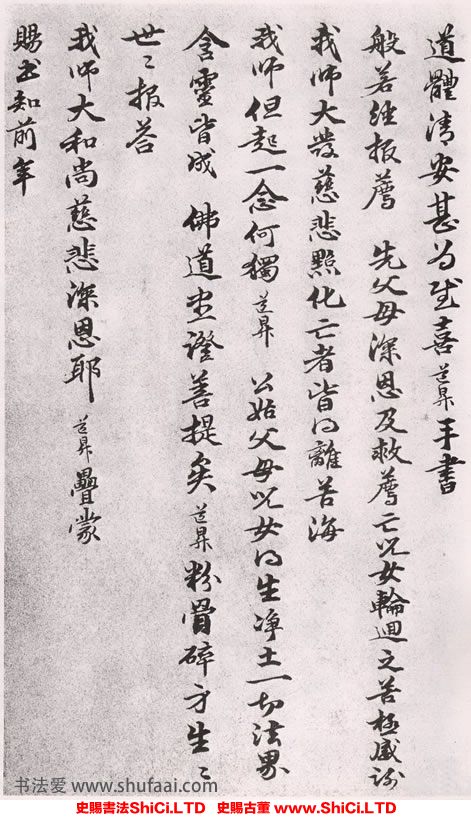 道體清安甚为慰喜道昇手書
般若经报薦 先父母深恩及救薦亡兒女輪迴之苦極感謝
我师大發慈悲點化亡者皆得離苦海
我师但起一念何獨道昇 公姑父母兒女得生净土一切法界
含靈皆成 佛道並證菩提矣道昇粉骨碎身生〻
世〻报荅
我师大和尚慈悲深恩耶道昇疊蒙
賜书知前年
书法爱 www.shufaai.com
史賜書法ShiCi.LTD 史賜古董 www.ShiCi.LTD